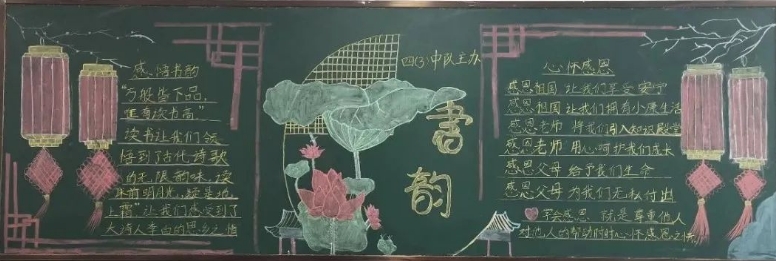 感悟书韵
“万般皆下品，
惟有读书高”
读书让我们领
悟到了古代诗歌
的无限韵味，读
“床前明月光，疑是地
上霜”让我们感受到了
大诗人李白的思乡之情
四(3)中队主办
书韵
心怀感恩
感恩祖国 让我们享受安宁
感恩祖国 让我们拥有小康生活
感恩老师 将我们引入知识殿堂
感恩老师 用心呵护我们成长
感恩父母 给予我们生命
感恩父母 为我们无私付出
学会感恩 就是尊重他人
对他人的帮助时时心怀感恩之情